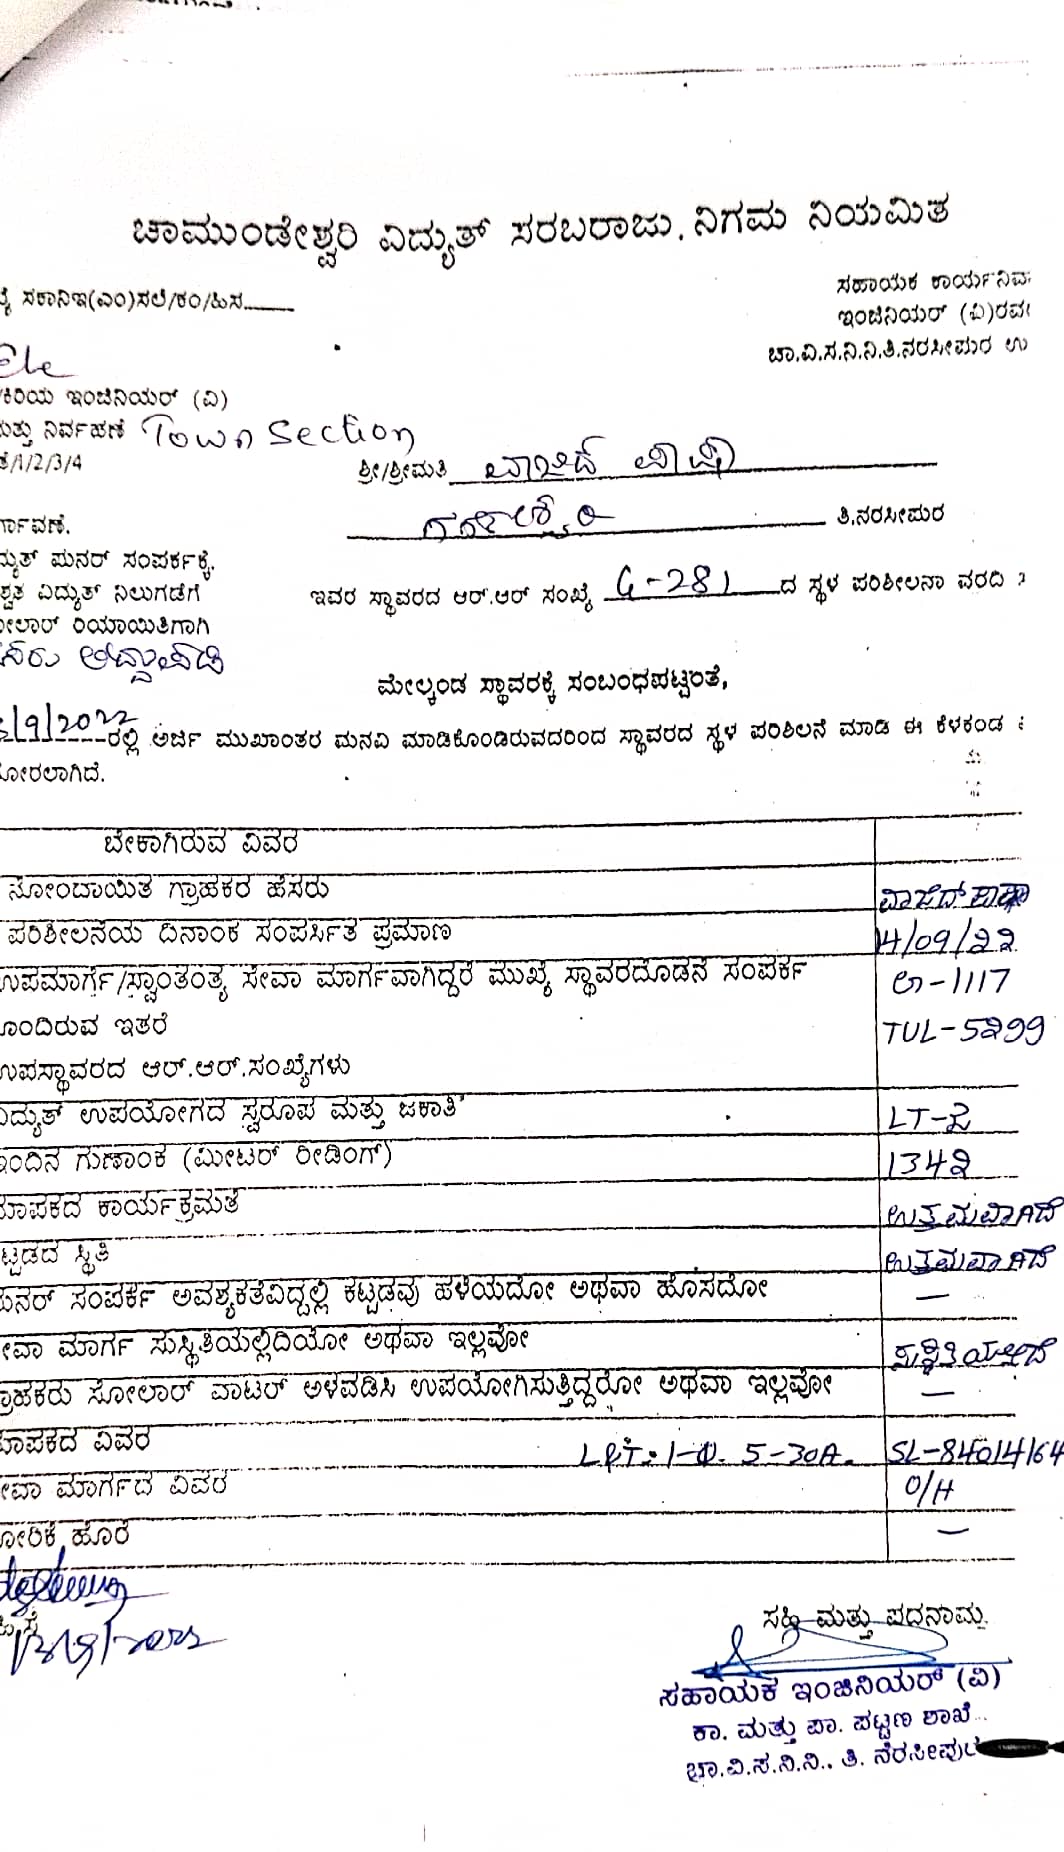 ಚಾಮುಂಡೇಶ್ವರಿ ವಿದ್ಯುತ್ ಸರಬರಾಜು ನಿಗಮ ನಿಯಮಿತ
ಸಕಾನಿಇ(ಎಂ)ಸಲೆ/ಕಂ/ಹಿಸ____
ಸಹಾಯಕ ಕಾರ್ಯನಿವ
ಇಂಜಿನಿಯರ್ (ವಿ)ರವ
ಚಾ.ವಿ.ಸ.ನಿ.ನಿ.ತಿ.ನರಸೀಪುರ ಉ
Ele
ಕಿರಿಯ ಇಂಜಿನಿಯರ್ (ವಿ)
ಮತ್ತು ನಿರ್ವಹಣೆ Town Section
/1/2/3/4
ಶ್ರೀ/ಶ್ರೀಮತಿ ವಾಜಿದ್ ಪಾಷಾ
ತಿ.ನರಸೀಪುರ
ರ್ಗಾವಣೆ.
ದ್ಯುತ್ ಪುನರ್ ಸಂಪರ್ಕಕ್ಕೆ.
ಶ್ವತ ವಿದ್ಯುತ್ ನಿಲುಗಡೆಗೆ
ಇವರ ಸ್ಥಾವರದ ಆರ್.ಆರ್ ಸಂಖ್ಯೆ G-281 ದ ಸ್ಥಳ ಪರಿಶೀಲನಾ ವರದಿ
ೋಲಾರ್ ರಿಯಾಯಿತಿಗಾಗಿ
ಮೇಲ್ಕಂಡ ಸ್ಥಾವರಕ್ಕೆ ಸಂಬಂಧಪಟ್ಟಂತೆ,
/9/2022 ರಲ್ಲಿ ಅರ್ಜಿ ಮುಖಾಂತರ ಮನವಿ ಮಾಡಿಕೊಂಡಿರುವದರಿಂದ ಸ್ಥಾವರದ ಸ್ಥಳ ಪರಿಶಿಲನೆ ಮಾಡಿ ಈ ಕೆಳಕಂಡ
ೋರಲಾಗಿದೆ.
ಬೇಕಾಗಿರುವ ವಿವರ
ನೋಂದಾಯಿತ ಗ್ರಾಹಕರ ಹೆಸರು ವಾಜಿದ್ ಪಾಷಾ
ಪರಿಶೀಲನೆಯ ದಿನಾಂಕ ಸಂಪರ್ಸಿತ ಪ್ರಮಾಣ 14/09/22
ಉಪಮಾರ್ಗ/ಸ್ವಾಂತಂತ್ರ್ಯ ಸೇವಾ ಮಾರ್ಗವಾಗಿದ್ದರೆ ಮುಖ್ಯ ಸ್ಥಾವರದೊಡನೆ ಸಂಪರ್ಕ ಅ-1117
ೊಂದಿರುವ ಇತರೆ TUL-5299
ಉಪಸ್ಥಾವರದ ಆರ್.ಆರ್.ಸಂಖ್ಯೆಗಳು
ವಿದ್ಯುತ್ ಉಪಯೋಗದ ಸ್ವರೂಪ ಮತ್ತು ಜಕಾತಿ LT-2
ಇಂದಿನ ಗುಣಾಂಕ (ಮೀಟರ್ ರೀಡಿಂಗ್) 1342
ಮಾಪಕದ ಕಾರ್ಯಕ್ರಮತೆ ಉತ್ತಮವಾಗಿದೆ
ಟ್ಟಡದ ಸ್ಥಿತಿ ಉತ್ತಮವಾಗಿದೆ
ಪುನರ್ ಸಂಪರ್ಕ ಅವಶ್ಯಕತೆವಿದ್ದಲ್ಲಿ ಕಟ್ಟಡವು ಹಳೆಯದೋ ಅಥವಾ ಹೊಸದೋ —
ೇವಾ ಮಾರ್ಗ ಸುಸ್ಥಿತಿಯಲ್ಲಿದಿಯೋ ಅಥವಾ ಇಲ್ಲವೋ ಸುಸ್ಥಿತಿಯಲ್ಲಿದೆ
್ರಾಹಕರು ಸೋಲಾರ್ ವಾಟರ್ ಅಳವಡಿಸಿ ಉಪಯೋಗಿಸುತ್ತಿದ್ದರೋ ಅಥವಾ ಇಲ್ಲವೋ —
ಮಾಪಕದ ವಿವರ L&T: 1-Φ. 5-30A. SL-84014164
ೇವಾ ಮಾರ್ಗದ ವಿವರ O/H
ೋರಿಕೆ ಹೊರೆ —
ಸಹಿ ಮತ್ತು ಪದನಾಮ
ಸಹಾಯಕ ಇಂಜಿನಿಯರ್ (ವಿ)
ಕಾ. ಮತ್ತು ಪಾ. ಪಟ್ಟಣ ಶಾಖೆ
ಚಾ.ವಿ.ಸ.ನಿ.ನಿ., ತಿ. ನರಸೀಪುರ